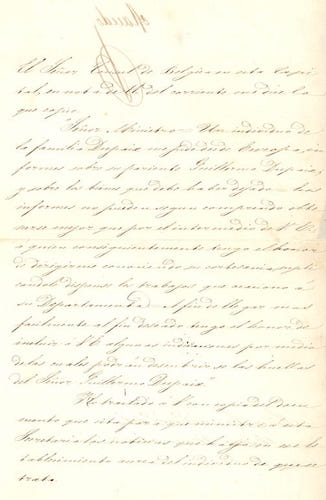 El Señor Consul de Belgica en esta Capi
tal, en nota de 11 del corriente me dice lo
que copio.
"Señor Ministro = Un individuo de
la familia Dupaix me pide desde Europa, in
formes sobre su pariente Guillermo Dupaix,
y sobre los bienes que debe haber dejado = Los
informes no pueden segun comprendo obte
nerse mejor que por el intermedio de V. E.
a quien consiguientemente tengo el honor
de dirigirme conociendo su cortesania, supli
candole dispense los trabajos que ocasiono á
su Departamento = A fin de llegar mas
facilmente al fin deseado tengo el honor de
incluir á V. E. algunas indicaciones por medio
de las cuales podrán descubrirse las huellas
del Señor Guillermo Dupaix."
Y lo traslado á V. con copia del docu
mento que cita para que ministre á esta
Secretaria las noticias que haya en ese Es
tablecimiento acerca del individuo de que se
trata.